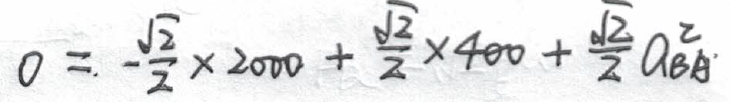 0 = -\frac{\sqrt{2}}{2} \times 2000 + \frac{\sqrt{2}}{2} \times 400 + \frac{\sqrt{2}}{2} a_{BA}^{2}